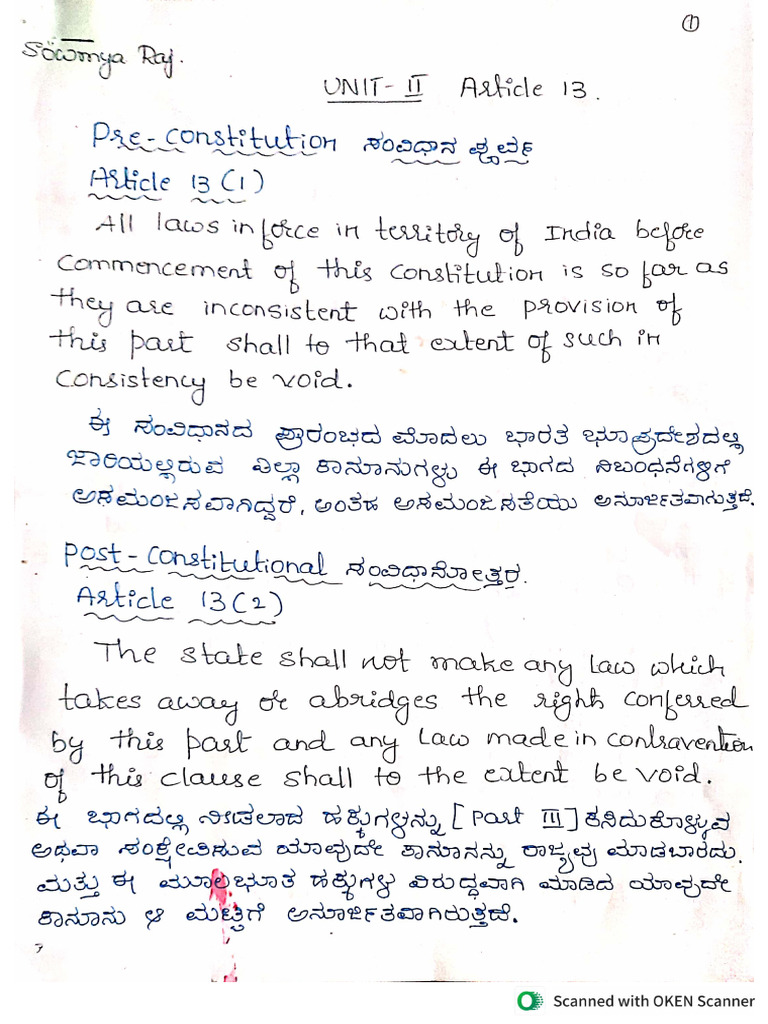 ①
Sowmya Raj.
UNIT-II Article 13.
Pre-constitution ಸಂವಿಧಾನ ಪೂರ್ವ
Article 13 (1)
All laws in force in territory of India before
commencement of this constitution is so far as
they are inconsistent with the provision of
this part shall to that extent of such in
consistency be void.
ಈ ಸಂವಿಧಾನದ ಪ್ರಾರಂಭದ ಮೊದಲು ಭಾರತ ಭೂಪ್ರದೇಶದಲ್ಲಿ
ಜಾರಿಯಲ್ಲಿರುವ ಎಲ್ಲಾ ಕಾನೂನುಗಳು ಈ ಭಾಗದ ನಿಬಂಧನೆಗಳಿಗೆ
ಅಸಮಂಜಸವಾಗಿದ್ದರೆ, ಅಂತಹ ಅಸಮಂಜಸತೆಯು ಅನೂರ್ಜಿತವಾಗುತ್ತದೆ.
Post-Constitutional ಸಂವಿಧಾನೋತ್ತರ.
Article 13(2)
The state shall not make any law which
takes away or abridges the right conferred
by this part and any law made in contravention
of this clause shall to the extent be void.
ಈ ಭಾಗದಲ್ಲಿ ನೀಡಲಾದ ಹಕ್ಕುಗಳನ್ನು [Part III] ಕಸಿದುಕೊಳ್ಳುವ
ಅಥವಾ ಸಂಕ್ಷೇಪಿಸುವ ಯಾವುದೇ ಕಾನೂನನ್ನು ರಾಜ್ಯವು ಮಾಡಬಾರದು.
ಮತ್ತು ಈ ಮೂಲಭೂತ ಹಕ್ಕುಗಳ ವಿರುದ್ಧವಾಗಿ ಮಾಡಿದ ಯಾವುದೇ
ಕಾನೂನು ಆ ಮಟ್ಟಿಗೆ ಅನೂರ್ಜಿತವಾಗಿರುತ್ತದೆ.
Scanned with OKEN Scanner